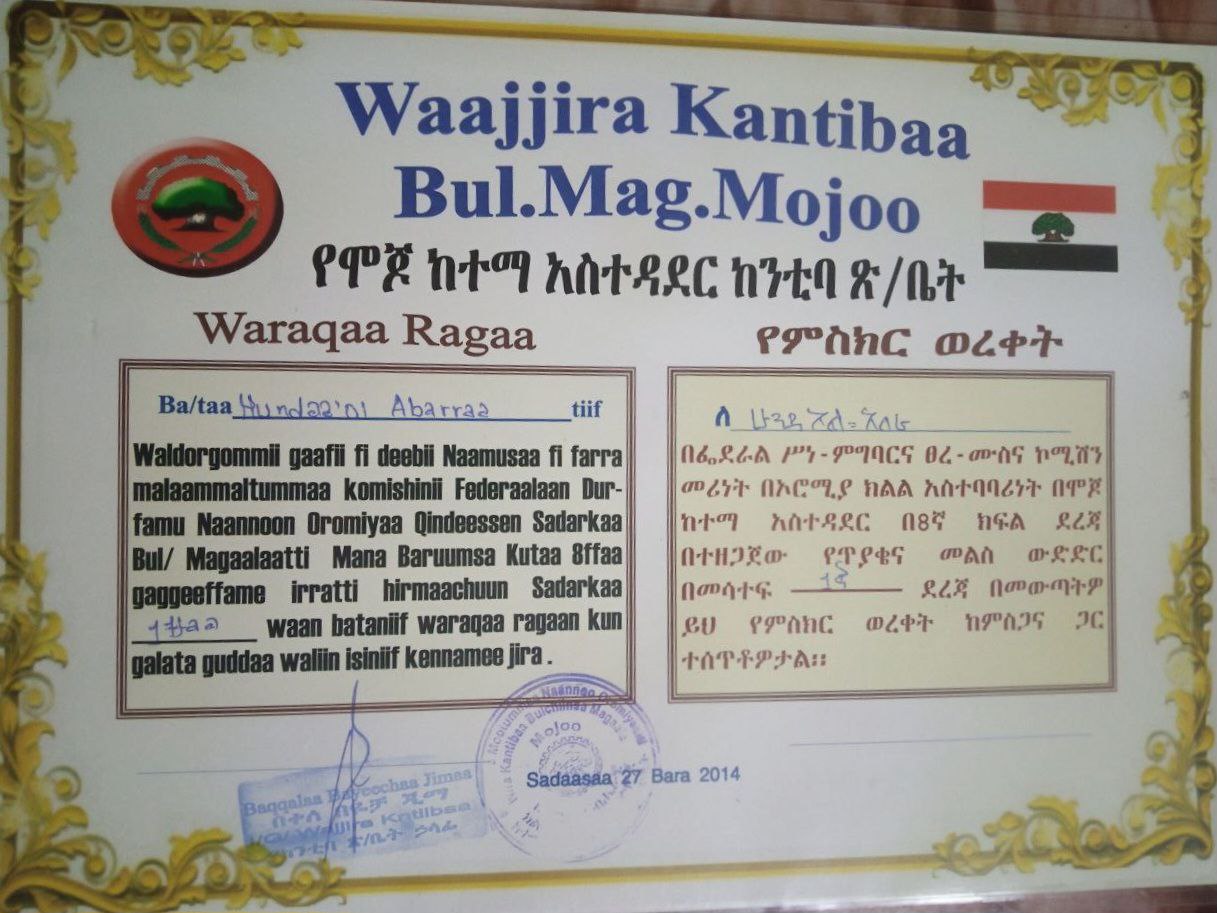 Waajjira Kantibaa
Bul.Mag.Mojoo
የሞጆ ከተማ አስተዳደር ከንቲባ ጽ/ቤት
Waraqaa Ragaa
Ba/taa Hundaa'ol Abarraa tiif
Waldorgommii gaafii fi deebii Naamusaa fi farra
malaammaltummaa komishinii Federaalaan Dur-
famu Naannoon Oromiyaa Qindeessen Sadarkaa
Bul/ Magaalaatti Mana Baruumsa Kutaa 8ffaa
gaggeeffame irratti hirmaachuun Sadarkaa
1ffaa waan bataniif waraqaa ragaan kun
galata guddaa waliin isiniif kennamee jira .
የምስክር ወረቀት
ለ ሁንዳኦል አበራ
በፌደራል ሥነ-ምግባርና ፀረ-ሙስና ኮሚሽን
መሪነት በኦሮሚያ ክልል አስተባባሪነት በሞጆ
ከተማ አስተዳደር በ8ኛ ክፍል ደረጃ
በተዘጋጀው የጥያቄና መልስ ውድድር
በመሳተፍ 1ኛ ደረጃ በመውጣትዎ
ይህ የምስክር ወረቀት ከምስጋና ጋር
ተሰጥቶዎታል፡፡
Mojoo
Sadaasaa 27 Bara 2014
Baqqalaa Bayeechaa Jimaa